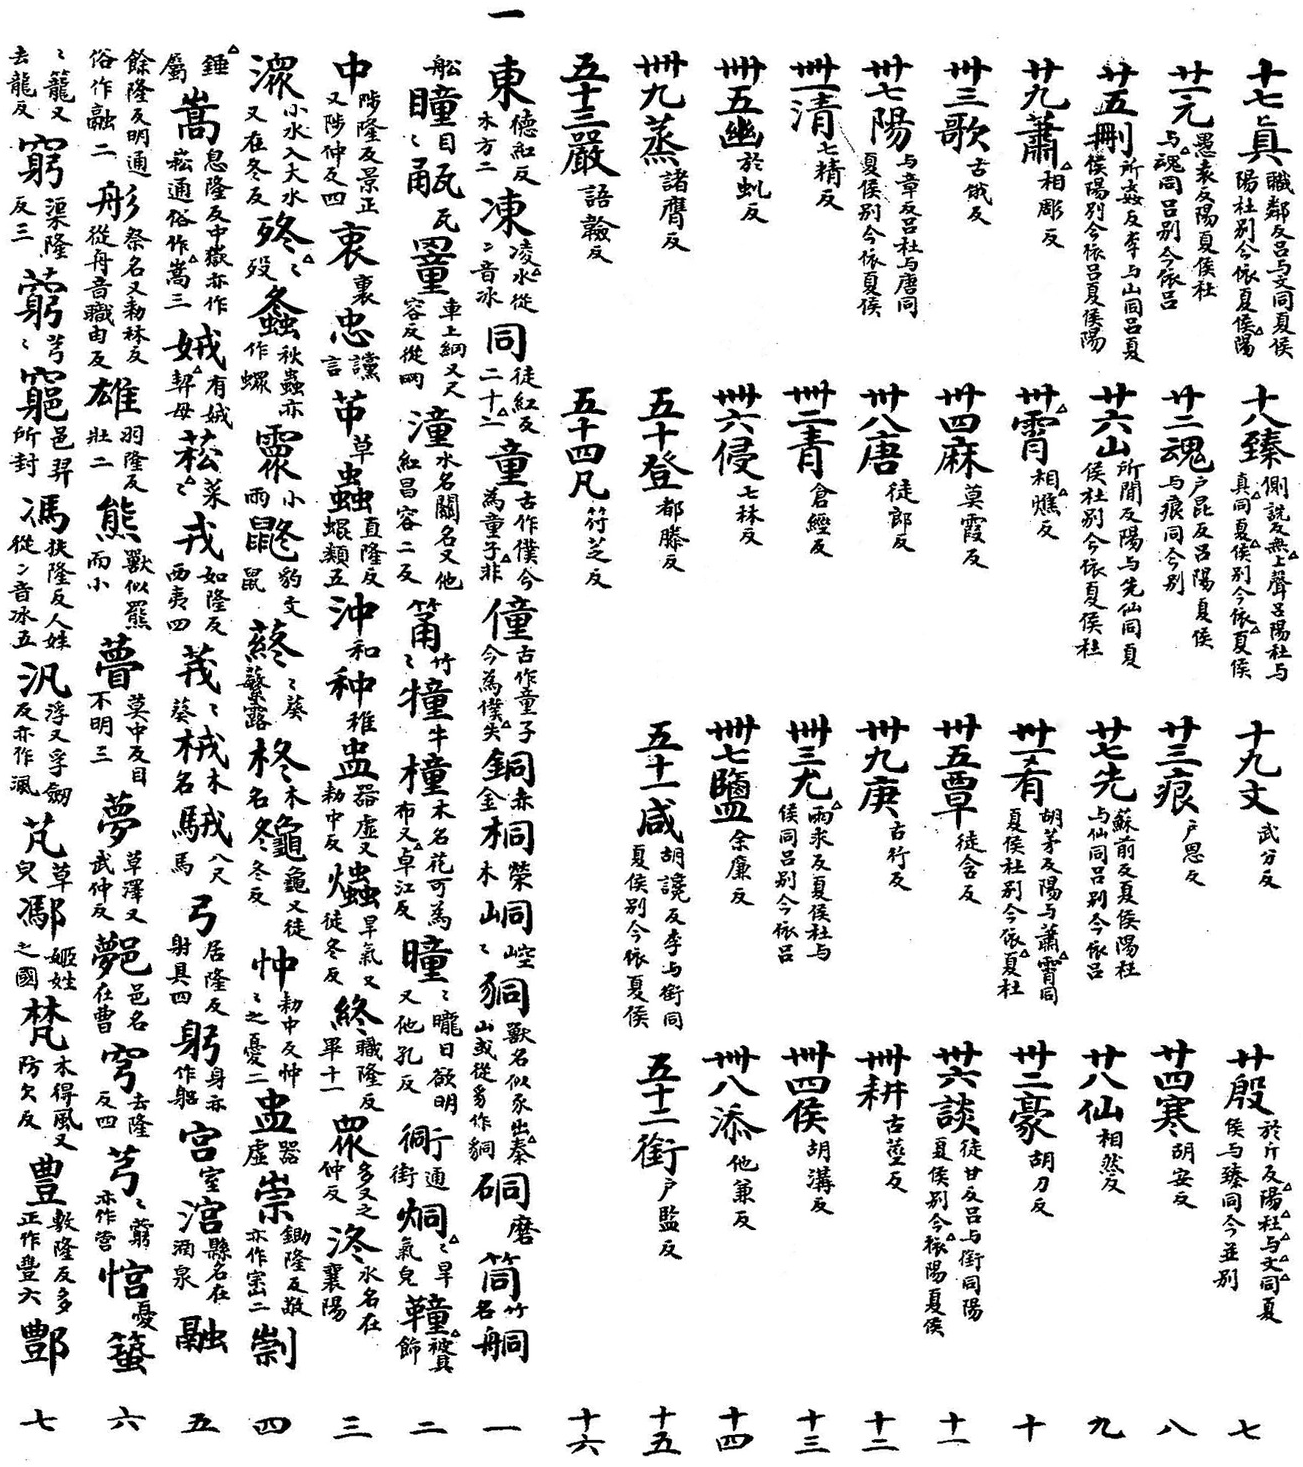 十七真職鄰反呂與文同夏侯陽杜別今依夏侯陽 十八臻側詵反無上聲呂陽杜与真同夏侯別今依夏侯 十九文武分反 廿殷於斤反陽杜与文同夏侯与臻同今並別 七
廿一元愚袁反陽夏侯杜与魂同呂別今依呂 廿二魂戶昆反呂陽夏侯与痕同今別 廿三痕戶恩反 廿四寒胡安反 八
廿五刪所姦反李与山同呂夏侯陽別今依呂夏侯陽 廿六山所閒反陽与先仙同夏侯杜別今依夏侯杜 廿七先蘇前反夏侯陽杜与仙同呂別今依呂 廿八仙相然反 九
廿九蕭相彫反 卅宵相燋反 卅一肴胡茅反陽与蕭宵同夏侯杜別今依夏杜 卅二豪胡刀反 十
卅三歌古俄反 卅四麻莫霞反 卅五覃徒含反 卅六談徒甘反呂与銜同陽夏侯別今依陽夏侯 十一
卅七陽与章反呂杜与唐同夏侯別今依夏侯 卅八唐徒郎反 卅九庚古行反 卌耕古莖反 十二
卌一清七精反 卌二青倉經反 卌三尤雨求反夏侯杜与侯同呂別今依呂 卌四侯胡溝反 十三
卌五幽於虬反 卌六侵七林反 卌七鹽余廉反 卌八添他兼反 十四
卌九蒸諸膺反 五十登都滕反 五十一咸胡讒反李与銜同夏侯別今依夏侯 五十二銜戶監反 十五
五十三嚴語䜝反 五十四凡符芝反 十六
一
東德紅反木方二 凍凌水從冫音冰 同徒紅反二十二 童古作僕今為童子非 僮古作童子今為僕失 銅赤金 桐榮木 峒崆〻 狪獸名似豕出秦山或從豸作狪 硐磨 筒竹名 舸 一
舩 瞳目〻 㼧瓦 罿車上網又尺容反從网 潼水名關名又他紅昌容二反 筩竹〻 犝牛 橦木名花可為布又卓江反 曈〻曨日欲明又他孔反 衕通街 烔〻旱氣皃 䩴被具飾 二
中陟隆反景正又陟仲反四 衷裏 忠讜言 茁草 蟲直隆反蜫類五 沖和 种稚 盅器虛又勑中反 爞旱氣又徒冬反 終職隆反畢十一 眾多又之仲反 泈水名在襄陽 三
潨小水入大水又在冬反 歿〻歿 螽秋蟲亦作螽 䨎小雨 鼨豹文鼠 蔠〻葵蘩露 柊木名 䶱龜又徒冬反 忡勑中反忡〻之憂二 盅器虛 崇鋤隆反敬亦作崈二 㓽 四
錘屬 嵩息隆反中嶽亦作崧通俗作嵩三 娀有娀契母 菘〻菜 戎如隆反西夷四 茙〻葵 栻木名 駥八尺馬 弓居隆反射具四 躬身亦作躳 宮室 涫縣名在酒泉 融 五
餘隆反明通俗作融二 肜祭名又勑林反從舟音職由反 雄羽隆反壯二 熊獸似羆而小 瞢莫中反目不明三 夢草澤又武仲反 鄸邑名在曹 穹去隆反四 芎〻藭亦作营 悺憂 䖟 六
〻籠又去龍反 窮渠隆反三 藭芎〻 竆邑羿所封 馮扶隆反人姓從冫音冰五 汎浮又孚劒反亦作渢 芃草皃 鄸姬姓之國 梵木得風又防欠反 豐敷隆反多正作豐六 酆 七